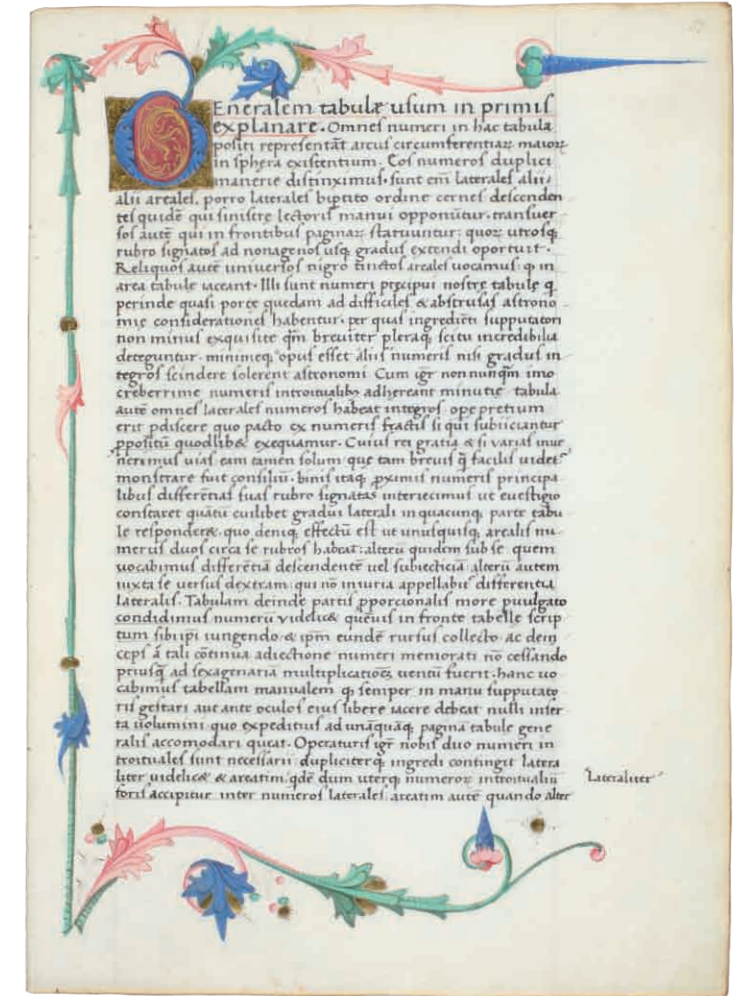 GEneralem tabulę usum in primis
explanare. Omnes numeri in hac tabula
positi representāt arcus circumferentiaꝝ maioꝝ
in sphera existentium. Eos numeros duplici
manerie distinximus. sunt em̄ laterales alii,
alii areales, porro laterales bipᵗito ordine cernes descenden
tes quidē qui sinistre lectoris manui opponūtur. transuer
sos autē qui in frontibus paginaꝝ statuuntur: quoꝝ utrosqꝫ
rubro signatos ad nonagenos usqꝫ gradus extendi oportuit.
Reliquos autē universos nigro tinctos areales vocamus. qꝫ in
area tabulę iaceant. Illi sunt numeri pręcipui nostrę tabulę qꝫ
perinde quasi portę quedam ad difficiles & abstrusas astrono
mię considerationes habentur. per quas ingrediēti supputatori
non minus exquisite qm̄ breviter pleraqꝫ scitu incredibilia
deteguntur. minimeqꝫ opus esset aliis numeris nisi gradus in
tegros scindere solerent astronomi. Cum igr̄ nonnunqm̄ imo
creberrime numeris introitualibꝫ adhereant minutię tabula
autē omnes laterales numeros habeat integros opępretium
erit p̄discere quo pacto ex numeris fractis si qui subiiciantur
ꝓpositū quodlibꝫ exequamur. Cuius rei gratia & si varias inue
nerimus vias eam tamen solum quę tam brevis qꝫ facilis videt᷑
monstrare fuit consiliū. binis itaqꝫ ꝓximis numeris principa
libus differētias suas rubro signatas interiecimus ut evestigio
constaret quātū cuilibet gradui laterali in quacunqꝫ parte tabu
lę respondeꝫ. quo deniqꝫ effectū est ut unusquisqꝫ arealis nu
merus duos circa se rubros habeat: alterū quidem sub se quem
vocabimus differētiā descendentē vel subiecticiā alterū autem
iuxta se versus dextram: qui nō iniuria appellabit᷑ differentia
lateralis. Tabulam deinde partis ꝓporcionalis more puulgato
condidimus numerū videlicꝫ quēvis in fronte tabellę scrip
tum sibiipi iungendo & ipm̄ eundē rursus collecto ac dein
ceps ā tali cōtinua adiectione numeri memorati nō cessando
priusqꝫ ad sexagenariā multiplicatiōēꝫ ventū fuerit. hanc vo
cabimus tabellam manualem qꝫ semper in manu supputato
ris gestari aut ante oculos eius libere iacere debeat nulli inser
ta volumini quo expeditius ad unāquāqꝫ paginā tabulę gene
ralis accomodari queat. Operaturis igr̄ nobis duo numeri in
troituales sunt necessarii dupliciterqꝫ ingredi contingit latera
liter videlicꝫ & areatim. qdē dum uterqꝫ numeroꝝ introitualiū
foris accipitur inter numeros laterales. areatim autē quando alter
Lateraliter